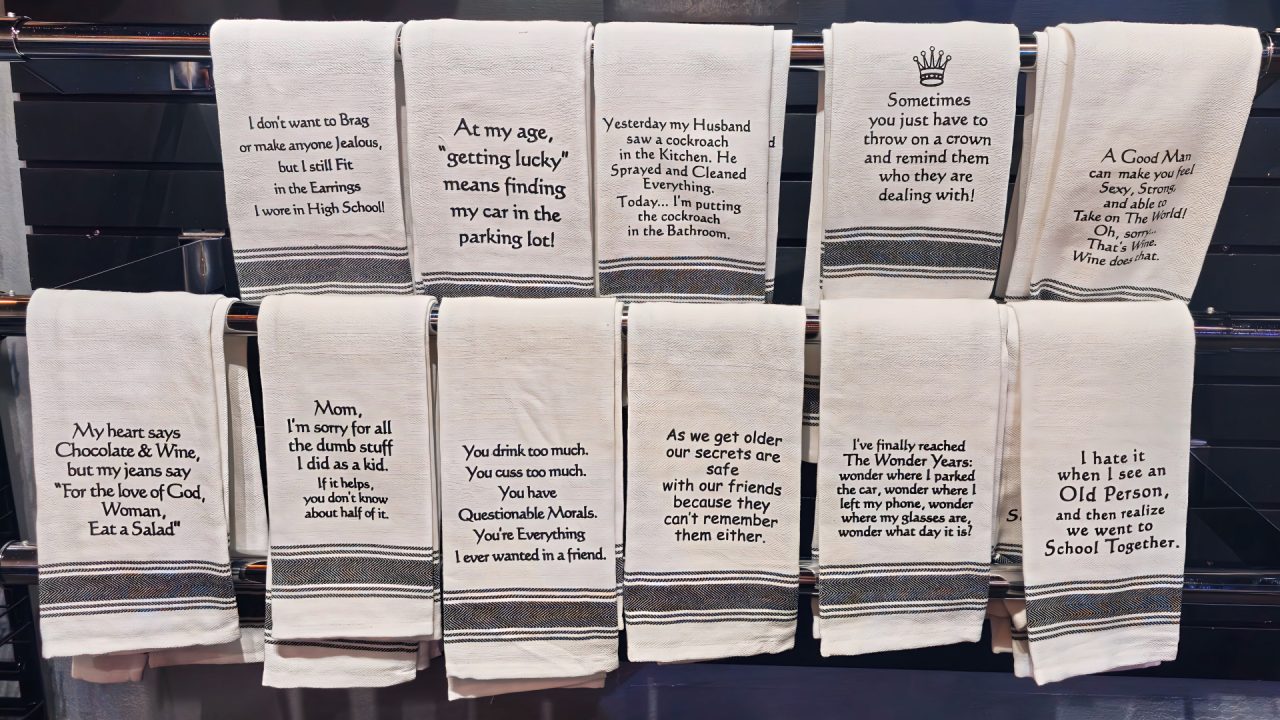 I don't want to Brag
or make anyone Jealous,
but I still Fit
in the Earrings
I wore in High School!
At my age,
"getting lucky"
means finding
my car in the
parking lot!
Yesterday my Husband
saw a cockroach
in the Kitchen. He
Sprayed and Cleaned
Everything.
Today... I'm putting
the cockroach
in the Bathroom.
Sometimes
you just have to
throw on a crown
and remind them
who they are
dealing with!
A Good Man
can make you feel
Sexy, Strong,
and able to
Take on The World!
Oh, sorry...
That's Wine.
Wine does that.
My heart says
Chocolate & Wine,
but my jeans say
"For the love of God,
Woman,
Eat a Salad"
Mom,
I'm sorry for all
the dumb stuff
I did as a kid.
If it helps,
you don't know
about half of it.
You drink too much.
You cuss too much.
You have
Questionable Morals.
You're Everything
I ever wanted in a friend.
As we get older
our secrets are
safe
with our friends
because they
can't remember
them either.
I've finally reached
The Wonder Years:
wonder where I parked
the car, wonder where I
left my phone, wonder
where my glasses are,
wonder what day it is?
I hate it
when I see an
Old Person,
and then realize
we went to
School Together.